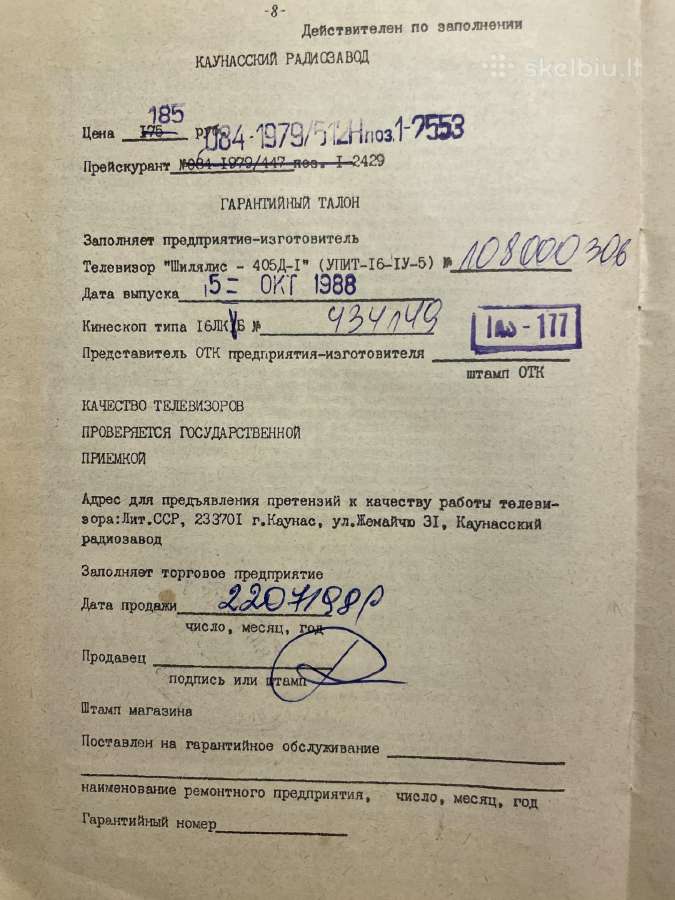 -8-
Действителен по заполнении
skelbiu.lt
КАУНАССКИЙ РАДИОЗАВОД
185
Цена 175 руб. 084-1979/512Н поз.1-7553
Прейскурант №084-1979/447 поз. I-2429
ГАРАНТИЙНЫЙ ТАЛОН
Заполняет предприятие-изготовитель
Телевизор "Шилялис - 405Д-I" (УПИТ-I6-IУ-5) № 108000306
Дата выпуска 5 ОКТ 1988
Кинескоп типа I6ЛК Б № 934149
177
Представитель ОТК предприятия-изготовителя
штамп ОТК
КАЧЕСТВО ТЕЛЕВИЗОРОВ
ПРОВЕРЯЕТСЯ ГОСУДАРСТВЕННОЙ
ПРИЕМКОЙ
Адрес для предъявления претензий к качеству работы телеви-
зора:Лит.ССР, 233701 г.Каунас, ул.Жемайчю 3I, Каунасский
радиозавод
Заполняет торговое предприятие
Дата продажи
число, месяц, год
Продавец
подпись или штамп
Штамп магазина
Поставлен на гарантийное обслуживание
наименование ремонтного предприятия, число, месяц, год
Гарантийный номер